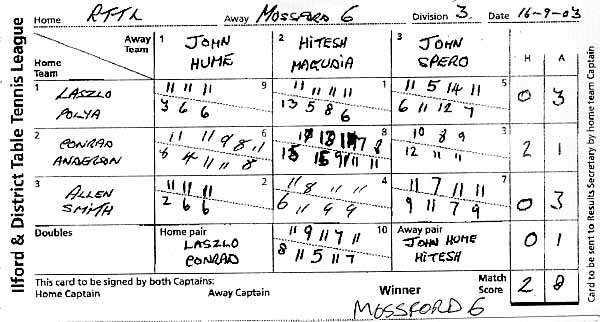 Ilford & District Table Tennis League
Home RTTL Away MOSSFORD 6 Division 3. Date 16-9-03
Away Team
Home Team
1 JOHN HUME
2 HITESH MAQUDIA
3 JOHN SPERO
H A
1 LASZLO POLYA
9 11 11 11
3 6 6
1 11 11 11 11
13 5 8 6
5 11 5 14 11
6 11 12 7
0 3
2 CONRAD ANDERSON
6 11 11 9 8 11
8 4 11 11 8
8
3 10 8 9
12 11 11
2 1
3 ALLEN SMITH
2 11 11 11
2 6 6
4 11 8 11 11
6 11 9 9
7 11 7 11 11
9 11 7 9
0 3
Doubles
Home pair
LASZLO
CONRAD
10 11 9 11 7 11
8 11 5 11 7
Away pair
JOHN HUME
HITESH
0 1
This card to be signed by both Captains:
Home Captain Away Captain
Winner
MOSSFORD 6
Match Score 2 8
Card to be sent to Results Secretary by home team Captain